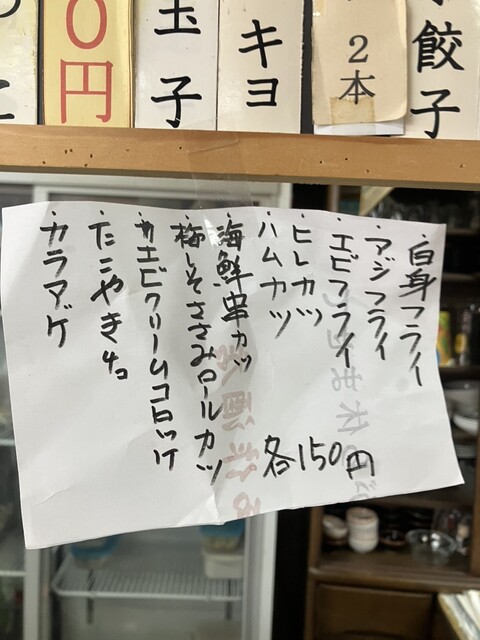 餃子
2本
キヨ
玉子
0円
・白身フライ
・アジフライ
・エビフライ
・ヒレカツ
・ハムカツ
・海鮮串カツ
・梅しそささみロールカツ
・カニクリームコロッケ
・たこやき4コ
・カラアゲ
各150円